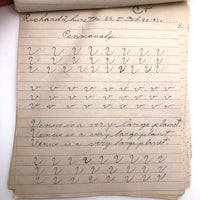 Richard
Penmanship
V V V V V V V V
V V V V V V V V
V V V V V V V V V
v v v v v v v v
v v v v v v v v
v v v v v v v v
Venus is a very large planet.
Venus is a very large planet.
Venus is a very large planet.
V V V V V V V V
V V V V V V V V
V V V V V V V V